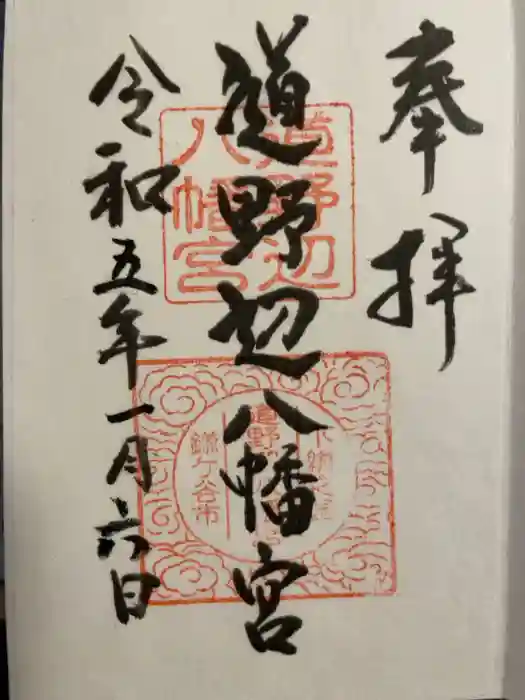 奉拝
道野辺八幡宮
令和五年一月六日
道野辺
八幡宮
鎌ケ谷市